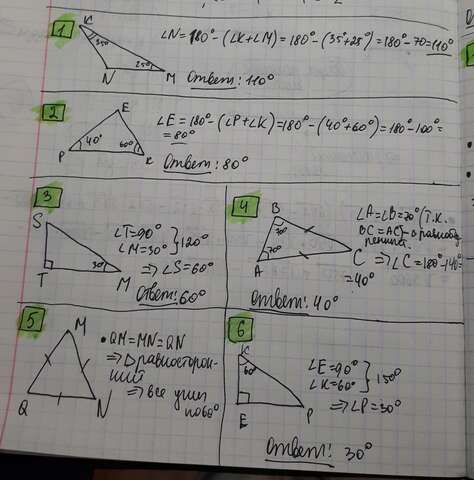 1
K
35°
N
25°
M
∠N = 180° - (∠K+∠M) = 180° - (35°+25°) = 180° - 70 = 110°
Ответ: 110°
2
E
P
40°
60°
K
∠E = 180° - (∠P+∠K) = 180° - (40°+60°) = 180° - 100° =
= 80°
Ответ: 80°
3
S
T
30°
M
∠T = 90°
∠M = 30° } 120°
⇒ ∠S = 60°
Ответ: 60°
4
B
70°
70°
A
C
∠A = ∠B = 70° (т.к.
BC = AC) - равнобе
⇒ ∠C = 180° - 140° =
= 40°
Ответ: 40°
5
M
Q
N
• QM = MN = QN
⇒ △ равносторон-
ний
⇒ все углы
по 60°
6
K
60°
E
P
∠E = 90°
∠K = 60° } 150°
⇒ ∠P = 30°
Ответ: 30°